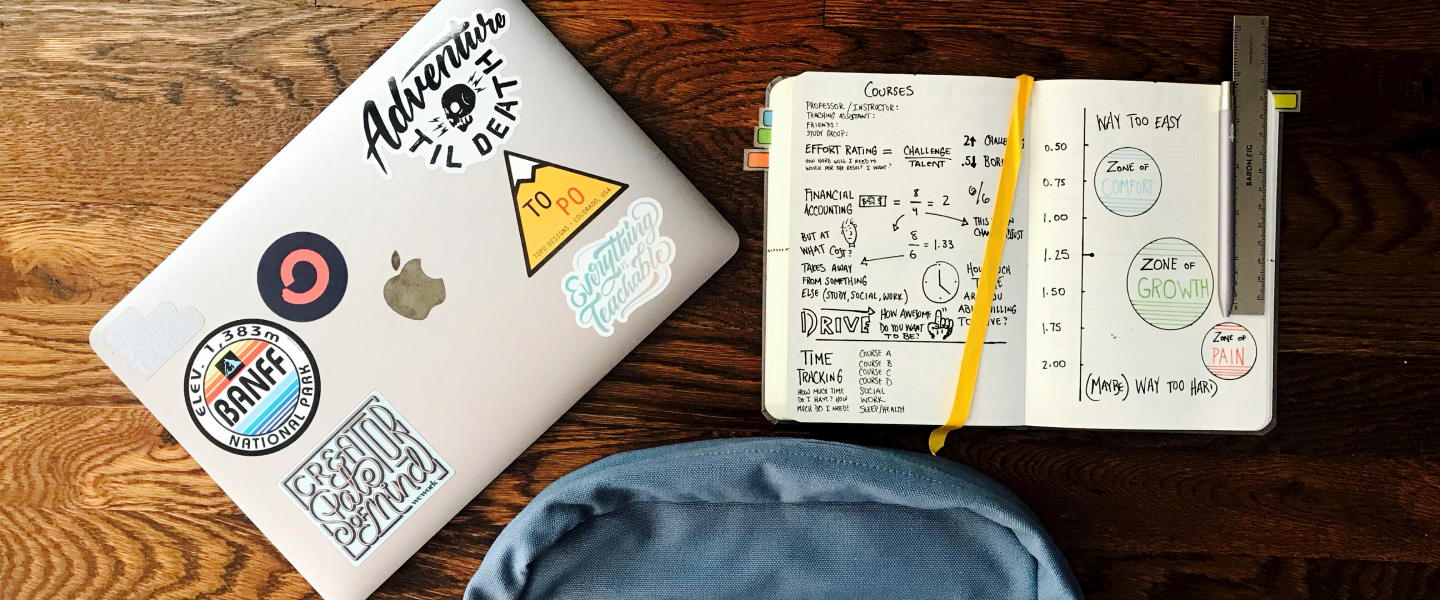 Adventure
TIL DEATH
TO PO
TOPO DESIGNS - COLORADO, USA
Everything
IS
Teachable
ELEV. 1,383m
BANFF
NATIONAL PARK
CREATOR
State
OF Mind
wework
COURSES
PROFESSOR / INSTRUCTOR:
TEACHING ASSISTANT:
FRIENDS:
STUDY GROUP:
EFFORT RATING = CHALLENGE
TALENT
HOW HARD WILL I NEED TO
WORK FOR THE RESULT I WANT?
2↑
.5↓
FINANCIAL
ACCOUNTING
= 8/4 = 2
6/6
BUT AT
WHAT COST?
8/6 = 1.33
TAKES AWAY
FROM SOMETHING
ELSE (STUDY, SOCIAL, WORK)
DRIVE
HOW AWESOME
DO YOU WANT
TO BE?
TIME
TRACKING
HOW MUCH TIME
DO I HAVE? HOW
MUCH DO I NEED?
COURSE A
COURSE B
COURSE C
COURSE D
SOCIAL
WORK
SLEEP/HEALTH
WAY TOO EASY
0.50
0.75
1.00
1.25
1.50
1.75
2.00
ZONE OF
COMFORT
ZONE OF
GROWTH
ZONE OF
PAIN
(MAYBE) WAY TOO HARD
BARON FIG